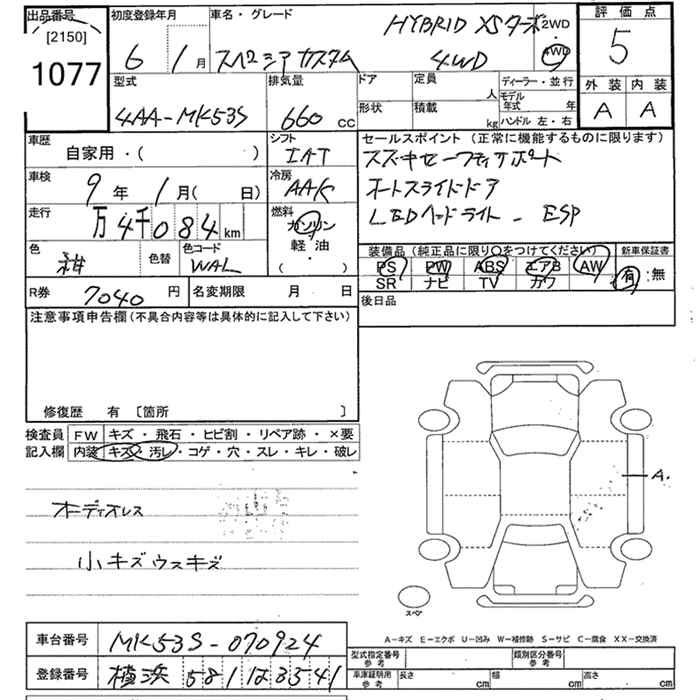 出品番号
[2150]
1077
初度登録年月
6 年 1 月
車名・グレード
スペーシアカスタム
HYBRID XSターボ
4WD
2WD
4WD
評価点
5
外装 内装
A A
型式
4AA-MK53S
排気量
660 cc
ドア
定員
人
形状
積載
kg
ディーラー・並行
モデル年式 年
ハンドル 左・右
車歴
自家用・( )
シフト
IAT
車検
9 年 1 月( 日)
冷房
AAC
走行
万4千084 km
燃料
ガソリン
軽油
( )
色
紺
色替
色コード
WAL
R券
7040 円
名変期限 月 日
セールスポイント (正常に機能するものに限ります)
スズキセーフティサポート
オートスライドドア
LEDヘッドライト - ESP
装備品 (純正品に限り○をつけてください)
新車保証書
PS PW ABS エアB AW
SR ナビ TV カワ
有・無
後日品
注意事項申告欄(不具合内容等は具体的に記入して下さい)
修復歴 有 〔箇所 〕
検査員
記入欄
FW キズ・飛石・ヒビ割・リペア跡・×要
内装 キズ・汚レ・コゲ・穴・スレ・キレ・破レ
小キズウスキズ
A.
スペア
A-キズ E-エクボ U-凹み W-補修跡 S-サビ C-腐食 XX-交換済
車台番号
MK53S-070924
登録番号
横浜 581 は 3541
型式指定番号
参考
類別区分番号
参考
車庫証明用
参考
長さ cm
幅 cm
高さ cm